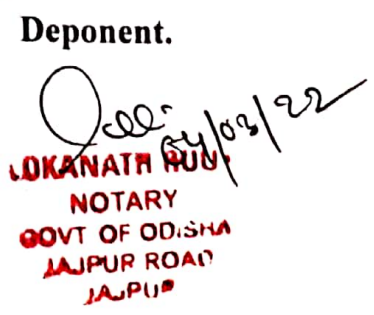 Deponent.
04/03/22
LOKANATH
NOTARY
GOVT OF ODISHA
JAJPUR ROAD
JAJPUR